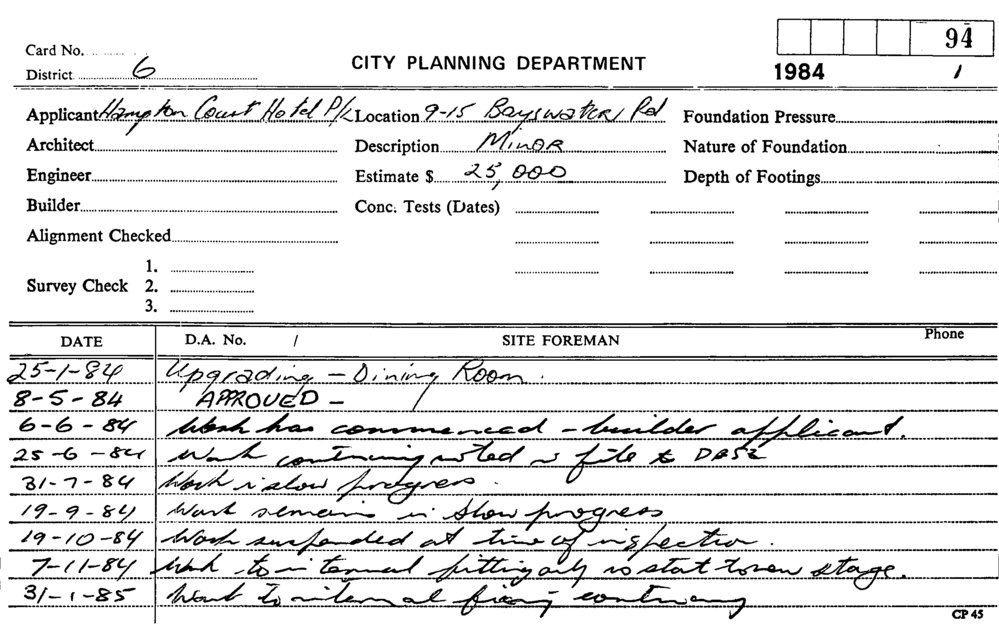 94
Card No.
CITY PLANNING DEPARTMENT
1984 1
District 6
Applicant Hampton Court Hotel P/L Location 9-15 Bayswater Rd Foundation Pressure
Architect Description Minor Nature of Foundation
Engineer Estimate $ 25,000 Depth of Footings
Builder Conc. Tests (Dates)
Alignment Checked
1.
Survey Check 2.
3.
DATE D.A. No. / SITE FOREMAN Phone
25-1-84 Upgrading - Dining Room.
8-5-84 APPROVED -
6-6-84 Work has commenced - builder applicant.
25-6-84 Work continuing noted file to
31-7-84 Work slow progress.
19-9-84 Work remains in slow progress
19-10-84 Work suspended at time of inspection.
7-11-84 Work to internal fitting only stage.
31-1-85 Work to internal continuing
CP 45